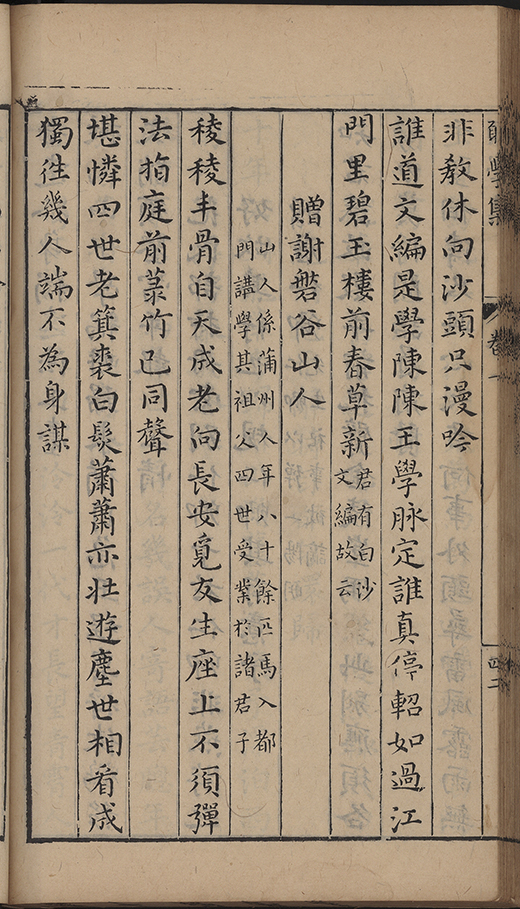 學集 卷一 四二
非敎休向沙頭只漫吟
誰道文編是學陳陳王學脈定誰真停軺如過江
門里碧玉樓前春草新
君有白沙
文編故云
贈謝磐谷山人
山人係蒲州人年八十餘匹馬入都
門講學其祖父四世受業於諸君子
稜稜丰骨自天成老向長安覓友生座上不須彈
法指庭前菉竹已同聲
堪憐四世老箕裘白髮蕭蕭亦壯遊塵世相看成
獨徃幾人端不為身謀